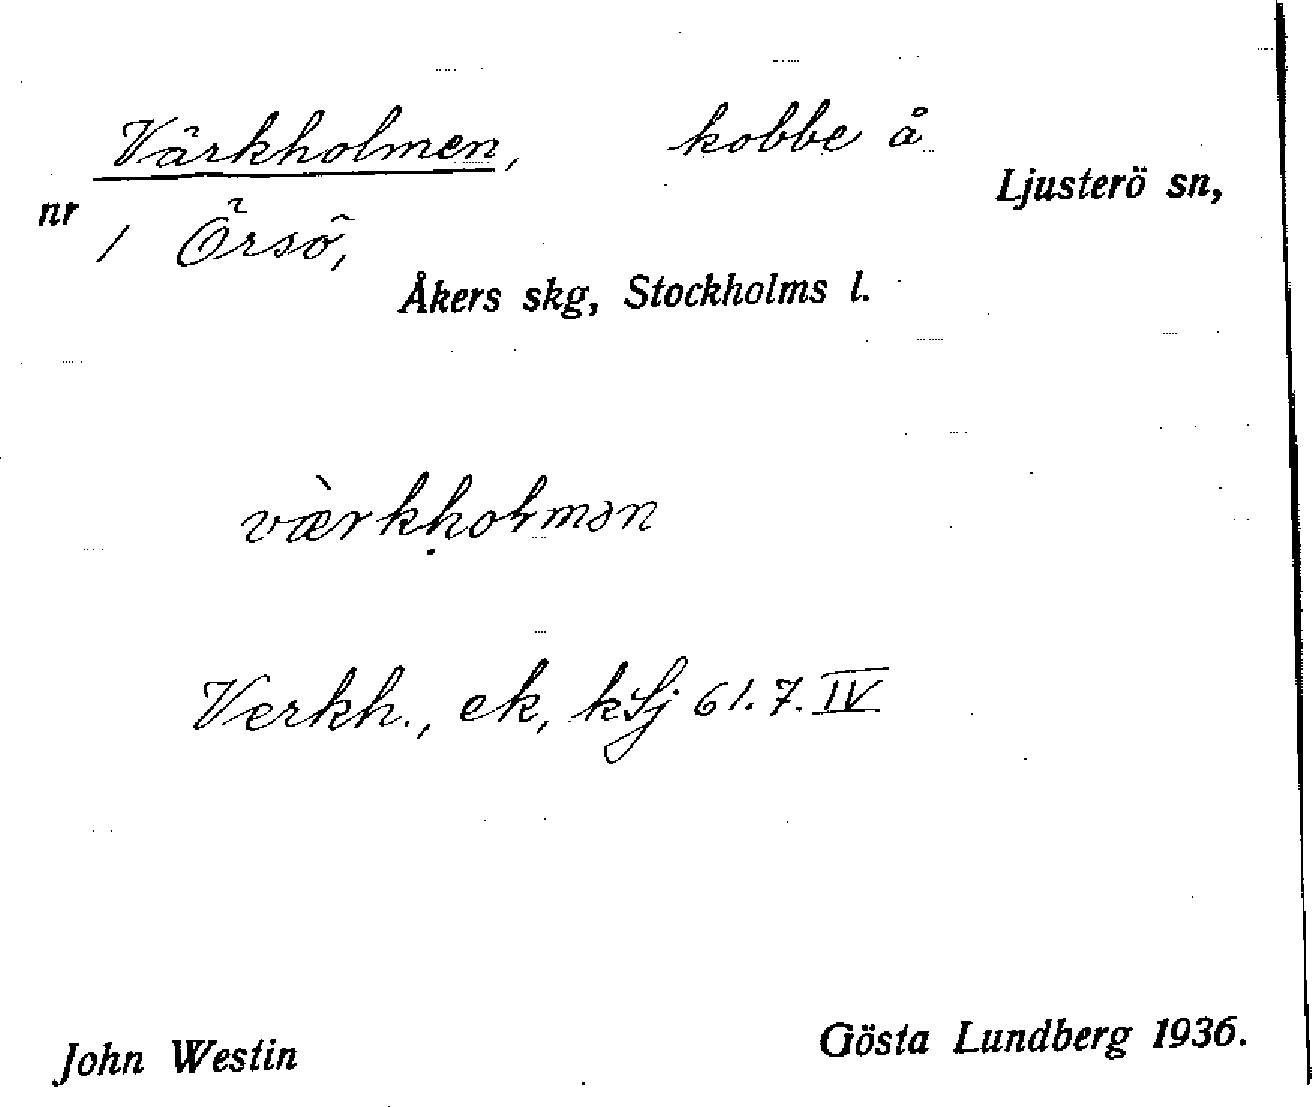 Värkholmen, kobbe å
Ljusterö sn,
nr 1 Örsö,
Åkers skg, Stockholms l.
vàrkḥolmən
Verkh., ek, kLj 61.7.IV
John Westin
Gösta Lundberg 1936.